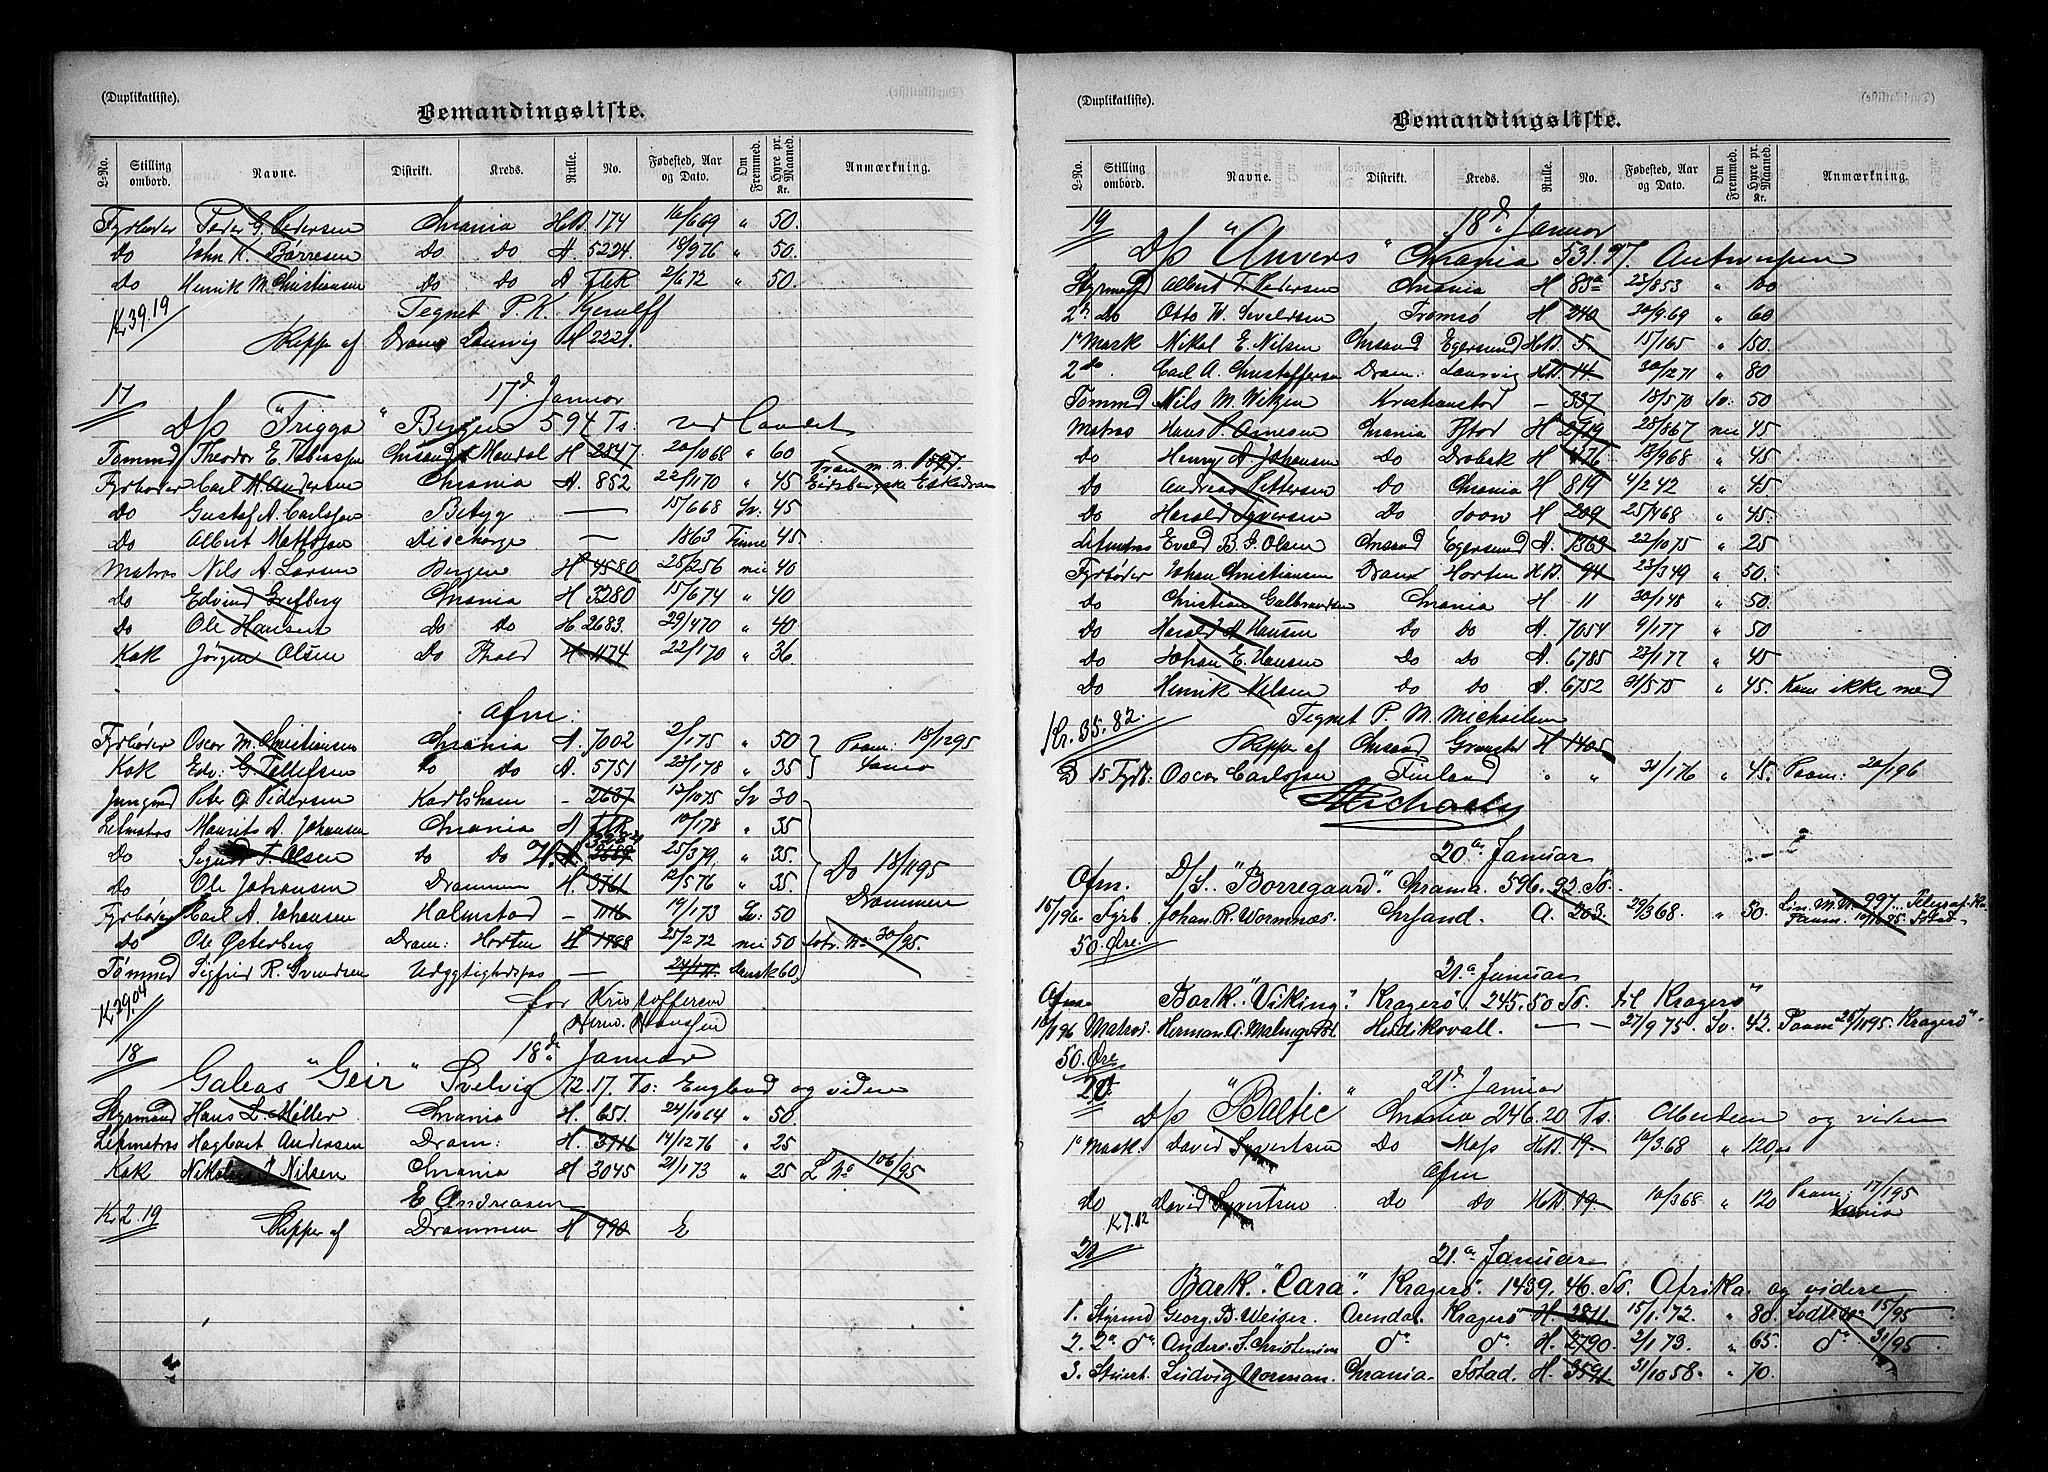 (Duplikatliste).
Bemandingsliste.
L-No. Stilling ombord. Navne. Distrikt. Kreds. Rulle. No. Fødested, Aar og Dato. Om Fremmed. Hyre pr. Maaned. Kr. Anmærkning.
Fyrbøder Peder G. Pedersen Chrania HB. 174 16/669 " 50.
Do John K. Børresen Do Do A. 5224 18/976 " 50.
Do Henrik M. Christiansen do do A flk 2/672 " 50.
Kr 39.19 Tegnet P. K. Kjerulff
Skipper af Dram Laurvig H 2221.
17 17d Januar
D/S "Trigga" Bergen 594 Ts: ud Landet
Tømmd Theodor E. Chrsand Mandal H 2847 20/1068 " 60
Fyrbøder Carl A. Andersen Chrania A. 852 22/1170 " 45
Do Gustaf A. Carlsson Betyg — 15/668 Sv. 45
Do Albert Mattsson Discharge — 1863 Finne 45.
Matros Nils A. Larsen Bergen H 4580 28/256 nei 40
Do Edvind Grefberg Chrania H 3280 15/674 " 40
Do Ole Hansen Do Do H. 2683. 29/470 " 40
Kok Jørgen Olsen Do Fhald H 1174 22/170 " 36
Afm:
Fyrbøder Oscar M. Christiansen Chrania A. 7002 2/175 " 50 Paam. 18/1295
Kok Edv: G. Tellefsen do Do A. 5751 23/178 " 35
Jungmd Peter O. Pedersen Karlsham - 2687 12/1075 Sv 30
Letmatros Maurits A. Johansen Chrania A flk 10/178 " 35
do Sigurd T. Olsen do do H. 2689 25/379 " 35. Do 18/1195
Do Ole Johansen Drammen H. 3761 12/576 " 35. Drammen
Fyrbøder Carl A. Johansen Halmstad - 1116 19/173 Sv: 50
do Ole Østerberg Dram: Horten H 1788 25/272 nei 50 30/95.
Tømmd Sigfrid R. Svendsen Udygtighedspas — 24/171 Dansk 60
Kr 29.04 for Kristofferson
Herm. Hanssen
18 18de Januar
Galeas "Geir" Svelvig 72.17. Ts: England og videre
Styrmand Hans L. Møller Chrania H. 651. 24/1064 " 50.
Letmatros Hagbart Andersen Dram: H. 3716 14/1276 " 25
Kok Nikolai Nilsen Chrania H 3045 21/173 " 25 L No 106/95
E Andreasen
Kr 2.19 Skipper af Drammen H 990 E
(Duplikatliste).
Bemandingsliste.
L-No. Stilling ombord. Navne. Distrikt. Kreds. Rulle. No. Fødested, Aar og Dato. Om Fremmed. Hyre pr. Maaned. Kr. Anmærkning.
19 18d Januar
D/S "Anvers" Chrania 531.97. Antwerpen
Styrmand Albert T. Pedersen Chrania H 83a 23/853 " 100
2n Do Otto W. Sivertsen Tromsø H 240 30/969 " 60
1e Mask Mikal E. Nilsen Chrsand Egersund HB. 5. 15/165 " 150.
2 do. Carl A. Christoffersen Dram: Laurvig HB. 14. 30/1271 " 80
Tømmd Nils M. Kristianstad - 337 18/570 Sv: 50
Matros Hans P. Arnesen Chrania Fstad H 2719 28/867 nei 45
do Henry A Johansen do Drøbak H 476 18/968 " 45
Do Andreas Pettersen Do Chrania H 819 4/242 " 45
Do Harald Syversen Do Soon H 209 25/468 " 45.
Letmatros Evald B. G. Olsen Chrsand Egersund A. 1363 22/1075 " 25
Fyrbøder Johan Christiansen Dram Horten HB. 94 23/349 " 50.
do Christian Galbrandsen Chrania H 11 30/148 " 50.
Do Harald A Hansen Do do A. 7054 9/177 " 50
Do Johan E. Hansen Do do A. 6785 23/177 " 45
Do Henrik Nilsen do do A. 6752 31/575 " 45. Kom ikke med
Kr. 35.82. Tegnet P. M. Michailsen
Skipper af Chrsand Grimstad H 1405
15 Fyrb: Oscar Carlsson Finland " " 31/176 " 45. Paam: 20/196
20de Januar
Afm. D/S. "Borregaard" Chrania. 596.92 To.
15/196. Fyrb Johan. R. Wormnæs. Chrsand. A. 203. 29/368. " 50.
50. Øre.
21.de Januar
Afm. Bark. "Viking". Kragerø. 245.50 To. til Kragerø"
16/196 Matros. Herman. A. Malmqvist Hudikovall. — — 27/975. Sv. 42. Paam 28/1195. Kragerø".
50. Øre
20. 21d Januar
D/S "Baltic" Chrania 246.20 Ts. Aberdeen og videre
1e Mask. David Syvertsen Do Moss HB. 19. 10/368 " 120,00
Afm
Do David Syvertsen Do Do HB. 19. 10/368 " 120 Paam: 17/195
Kr 7.12
20 21de Januar
Bark. "Cara". Kragerø. 1439.46. To. Afrika. og videre
1. Styrmd Georg. B. Weiser. Arendal. Kragerø H. 2811. 15/1.72. " 80. 15/95
2. 2de do Anders. S. Christensen do do H. 2790. 2/173. " 65. do 31/95
3. Stuert. Ludvig Norman. Chrania. Fstad. H. 3591. 31/1058. " 70.